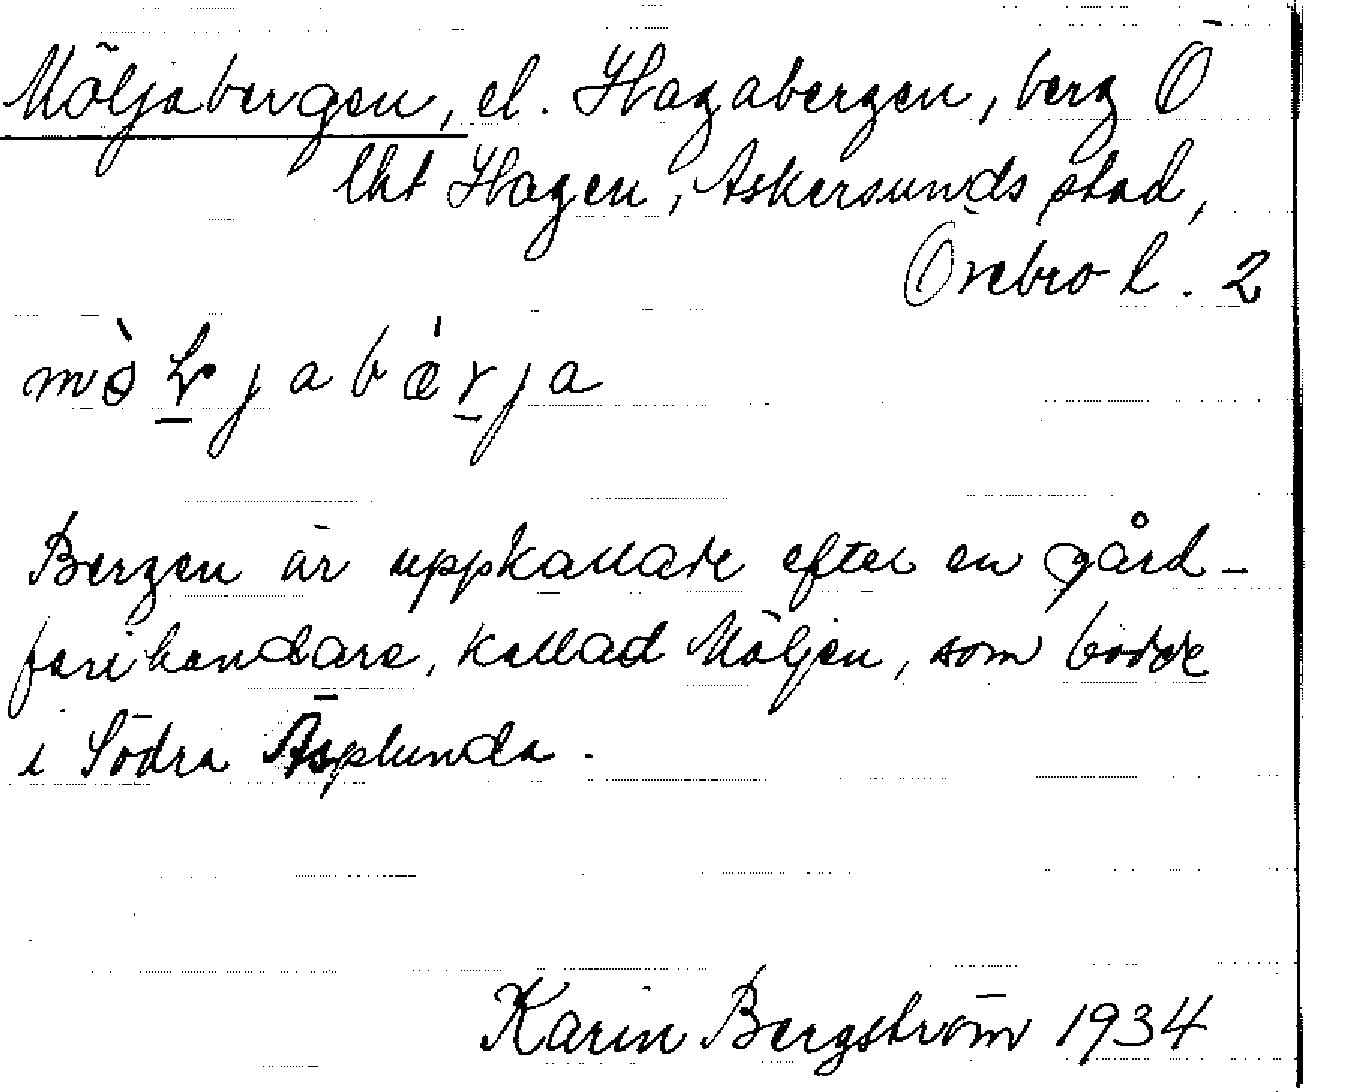 Möljabergen, el. Hagabergen, berg Ö
lht Hagen, Askersunds stad,
Örebro l. 2
Bergen är uppkallade efter en gård-
farihandlare, kallad Möljen, som bodde
i Södra Äsplunda.
Karin Bergström 1934